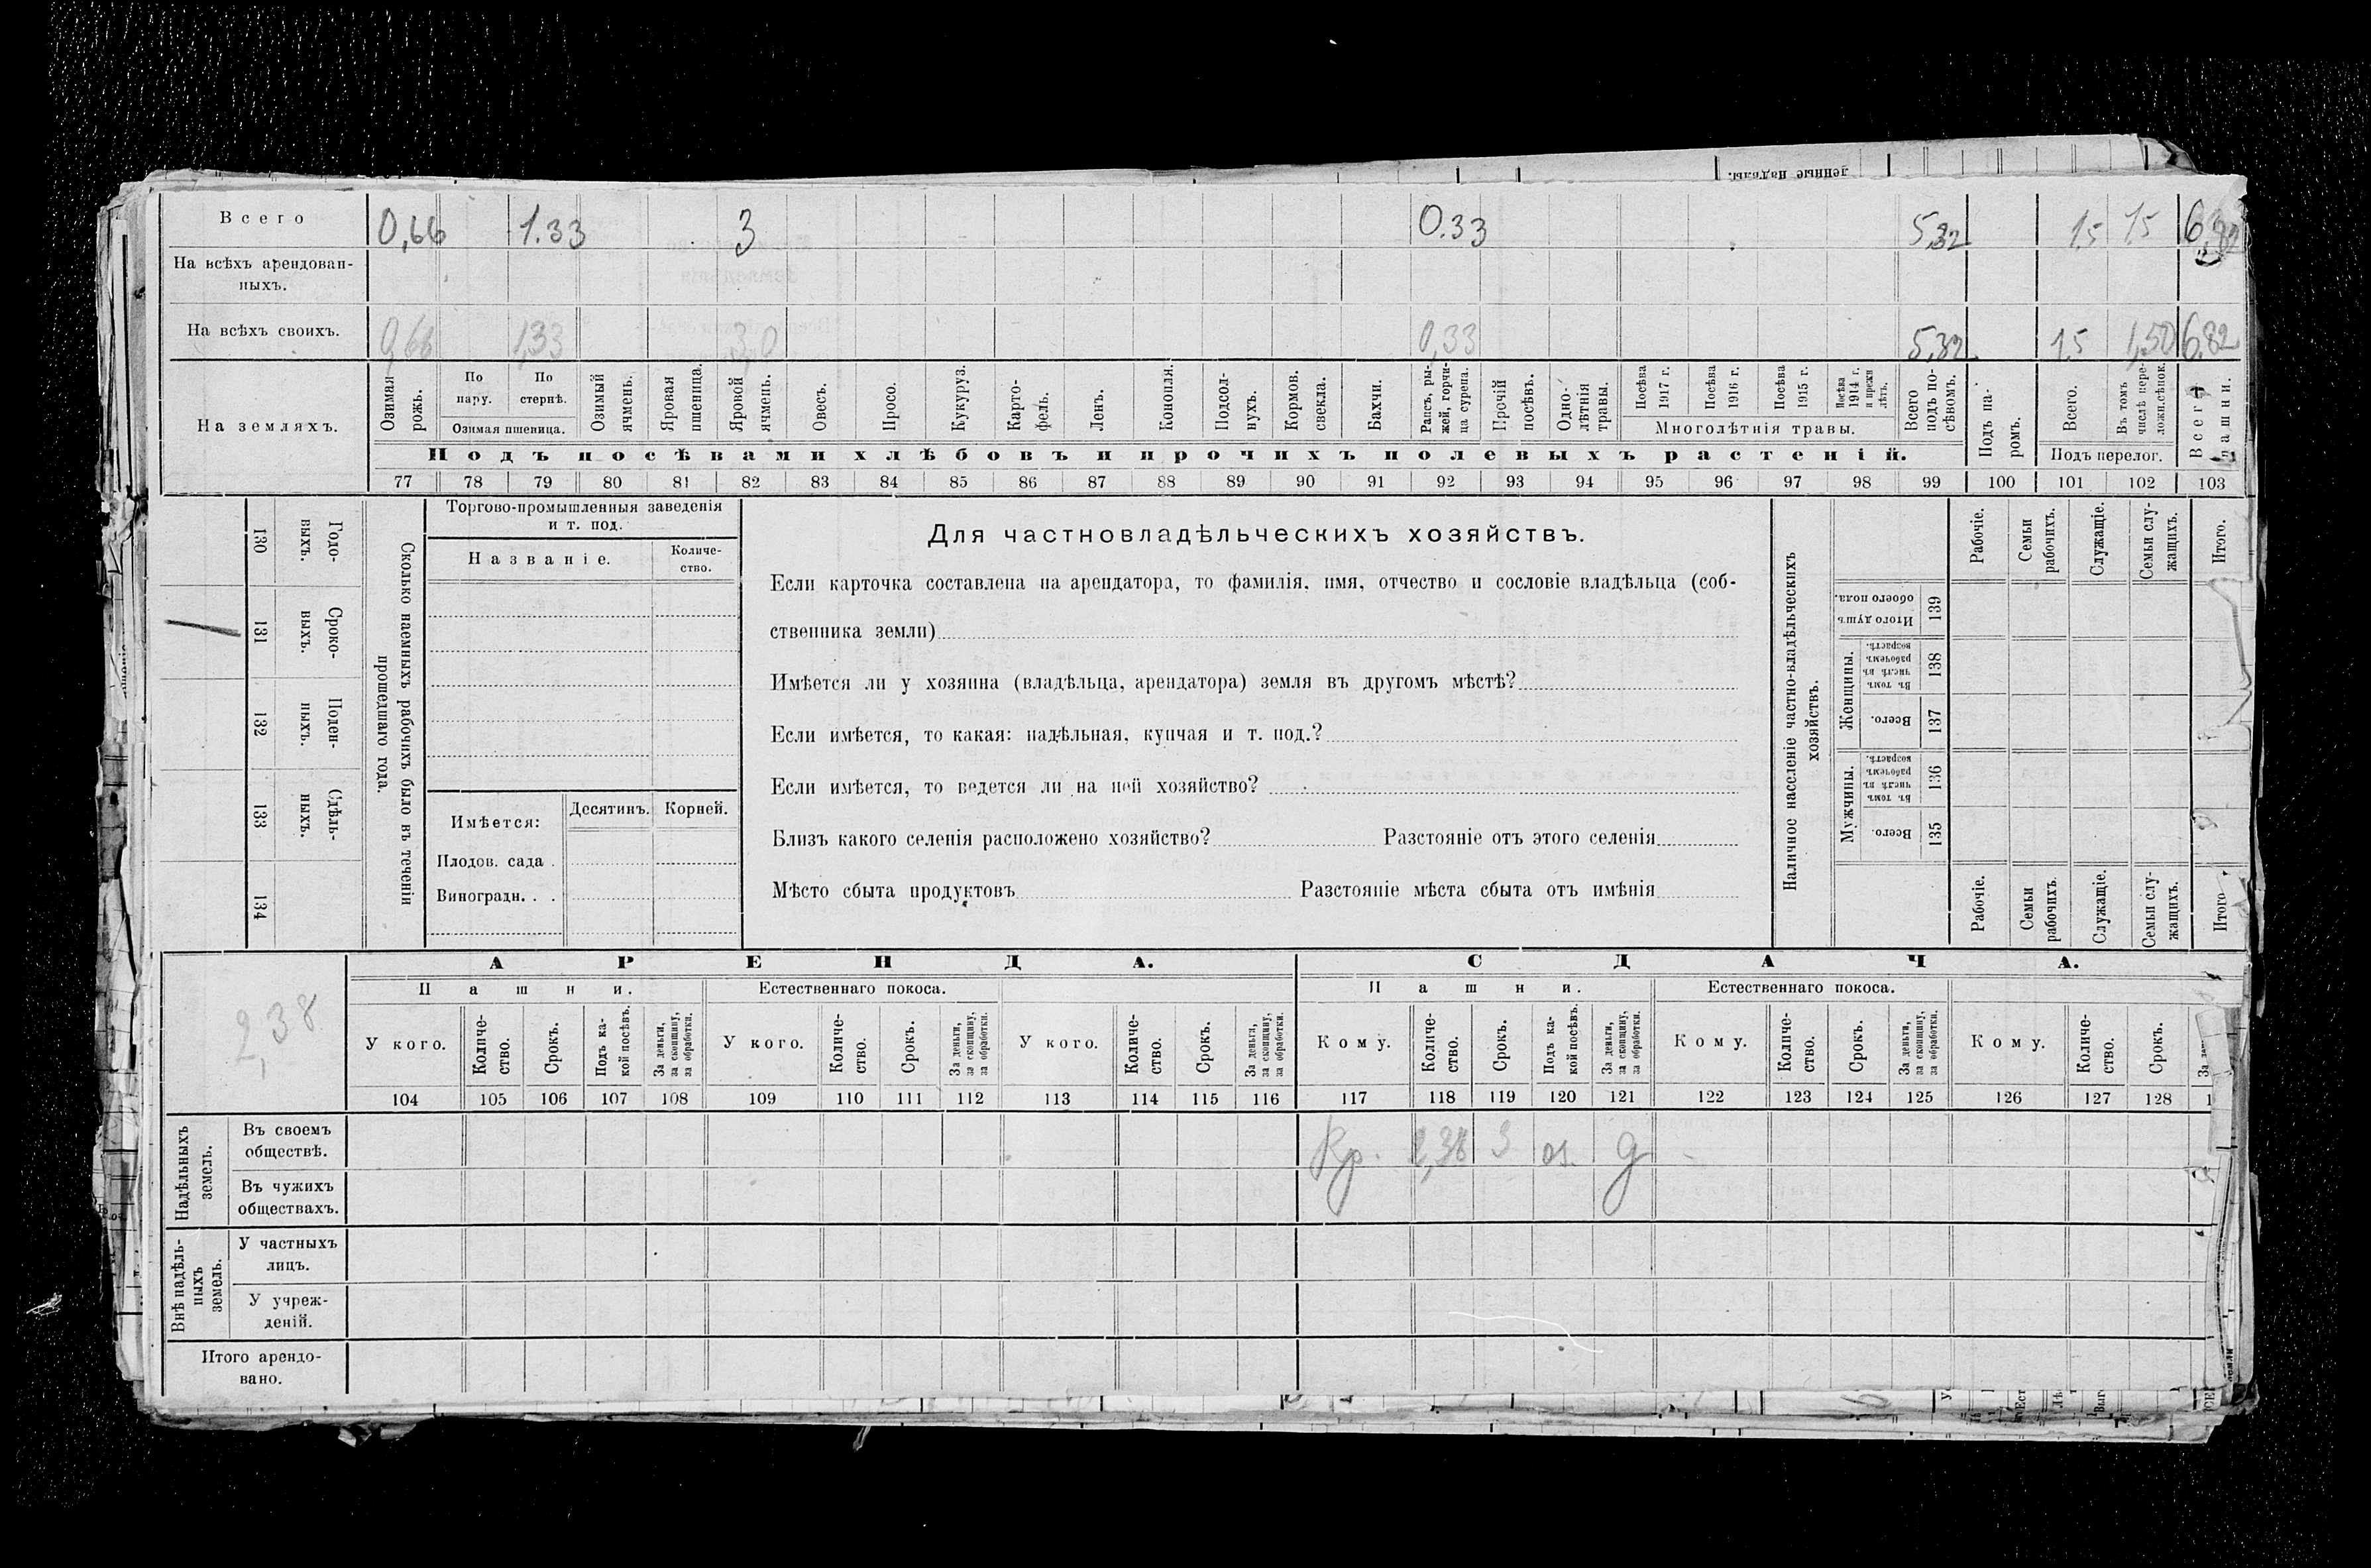 денные надѣлы.
Всего 0,66 1.33 3 0.33 5,32 1,5 1,5 6,82
На всѣхъ арендован-
ныхъ.
На всѣхъ своихъ. 0,66 1,33 3,0 0,33 5,32 1,5 1,50 6,82
На земляхъ.
Озимая рожь.
По пару.
По стернѣ.
Озимая пшеница.
Озимый ячмень.
Яровая пшеница.
Яровой ячмень.
Овесъ.
Просо.
Кукуруз.
Карто-
фель.
Ленъ.
Конопля.
Подсол-
нухъ.
Кормов. свекла.
Бахчи.
Рапсъ, ры-
жей, горчи-
ца сурепа.
Прочій посѣвъ.
Одно-
лѣтнія травы.
Посѣва 1917 г.
Посѣва 1916 г.
Посѣва 1915 г.
Посѣва 1914 г. и прежн лѣтъ.
Многолѣтнія травы.
Всего подъ по-
сѣвомъ.
Подъ па-
ромъ.
Всего.
Въ томъ числѣ пере-
ложн.сѣнок.
Подъ перелог.
Всего пашни.
Подъ посѣвами хлѣбовъ и прочихъ полевыхъ растеній.
77 78 79 80 81 82 83 84 85 86 87 88 89 90 91 92 93 94 95 96 97 98 99 100 101 102 103
130 Годо-
выхъ.
131 Сроко-
ныхъ.
132 Поден-
ныхъ.
133 Сдѣль-
ныхъ.
134
Сколько наемныхъ рабочихъ было въ теченіи
прошедшаго года.
Торгово-промышленныя заведенія
и т. под.
Названіе.
Количе-
ство.
Имѣется: Десятинъ. Корней.
Плодов. сада .
Виноградн. . .
Для частновладѣльческихъ хозяйствъ.
Если карточка составлена на арендатора, то фамилія, имя, отчество и сословіе владѣльца (соб-
ственника земли)
Имѣется ли у хозяина (владѣльца, арендатора) земля въ другомъ мѣстѣ?
Если имѣется, то какая: надѣльная, купчая и т. под.?
Если имѣется, то ведется ли на ней хозяйство?
Близъ какого селенія расположено хозяйство? Разстояніе отъ этого селенія
Мѣсто сбыта продуктовъ Разстояніе мѣста сбыта отъ имѣнія
Наличное населеніе частно-владѣльческихъ
хозяйствъ.
Рабочіе.
Семьи рабочихъ.
Служащіе.
Семьи слу-
жащихъ.
Итого.
Итого душъ обоего пола. 139
Женщины.
Въ томъ числѣ въ рабочемъ возрастѣ. 138
Всего. 137
Мужчины.
Въ томъ числѣ въ рабочемъ возрастѣ. 136
Всего. 135
Рабочіе.
Семьи рабочихъ.
Служащіе.
Семьи слу-
жащихъ.
Итого
2,38
АРЕНДА. СДАЧА.
Пашни. Естественнаго покоса. Пашни. Естественнаго покоса.
У кого.
Количе-
ство.
Срокъ.
Подъ ка-
кой посѣвъ.
За деньги, за скопщину, за обработки.
У кого.
Количе-
ство.
Срокъ.
За деньги, за скопщину, за обработки.
У кого.
Количе-
ство.
Срокъ.
За деньги, за скопщину, за обработки.
Кому.
Количе-
ство.
Срокъ.
Подъ ка-
кой посѣвъ.
За деньги, за скопщину, за обработки.
Кому.
Количе-
ство.
Срокъ.
За деньги, за скопщину, за обработки.
Кому.
Количе-
ство.
Срокъ.
За
104 105 106 107 108 109 110 111 112 113 114 115 116 117 118 119 120 121 122 123 124 125 126 127 128 1
Надѣльныхъ земель.
Въ своемъ
обществѣ.
Кр. 2,38 3 оз. д -
Въ чужихъ
обществахъ.
Внѣ надѣль-
ныхъ земель.
У частныхъ
лицъ.
У учреж-
деній.
Итого арендо-
вано.